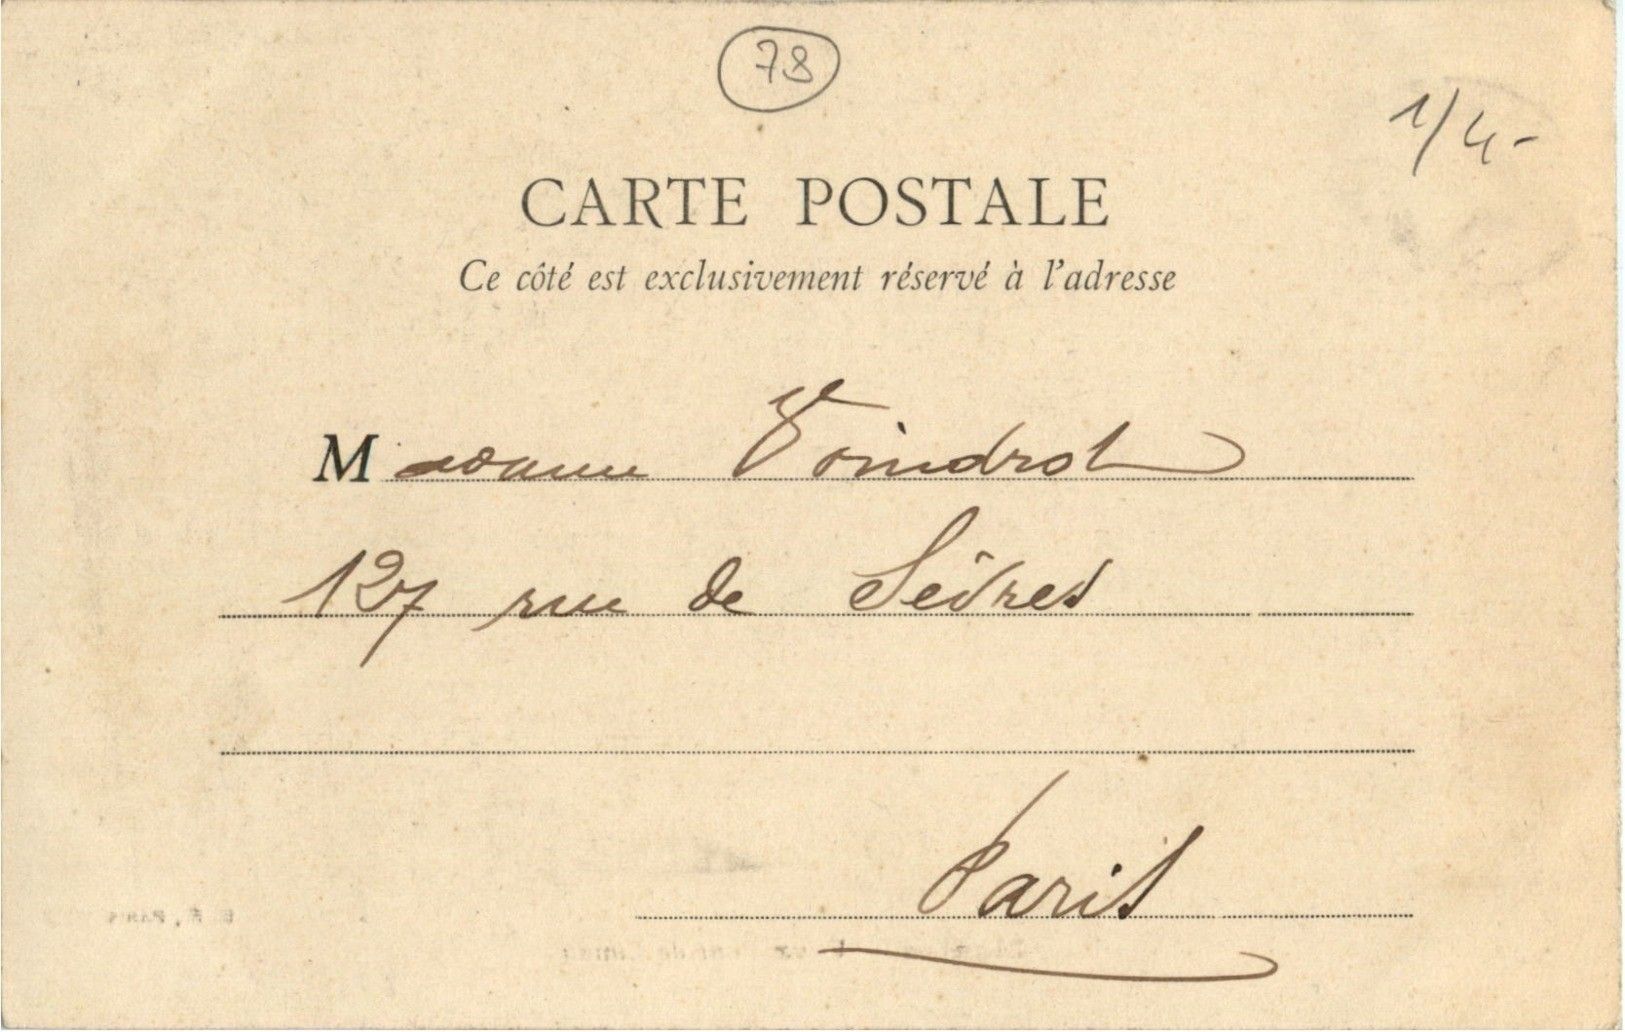 78
1/4-
CARTE POSTALE
Ce côté est exclusivement réservé à l'adresse
Madame Voindrot
127 rue de Sèvres
Paris